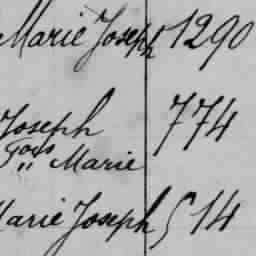 Marie Joseph 1290
Joseph 774
" Marie
Marie Joseph 514